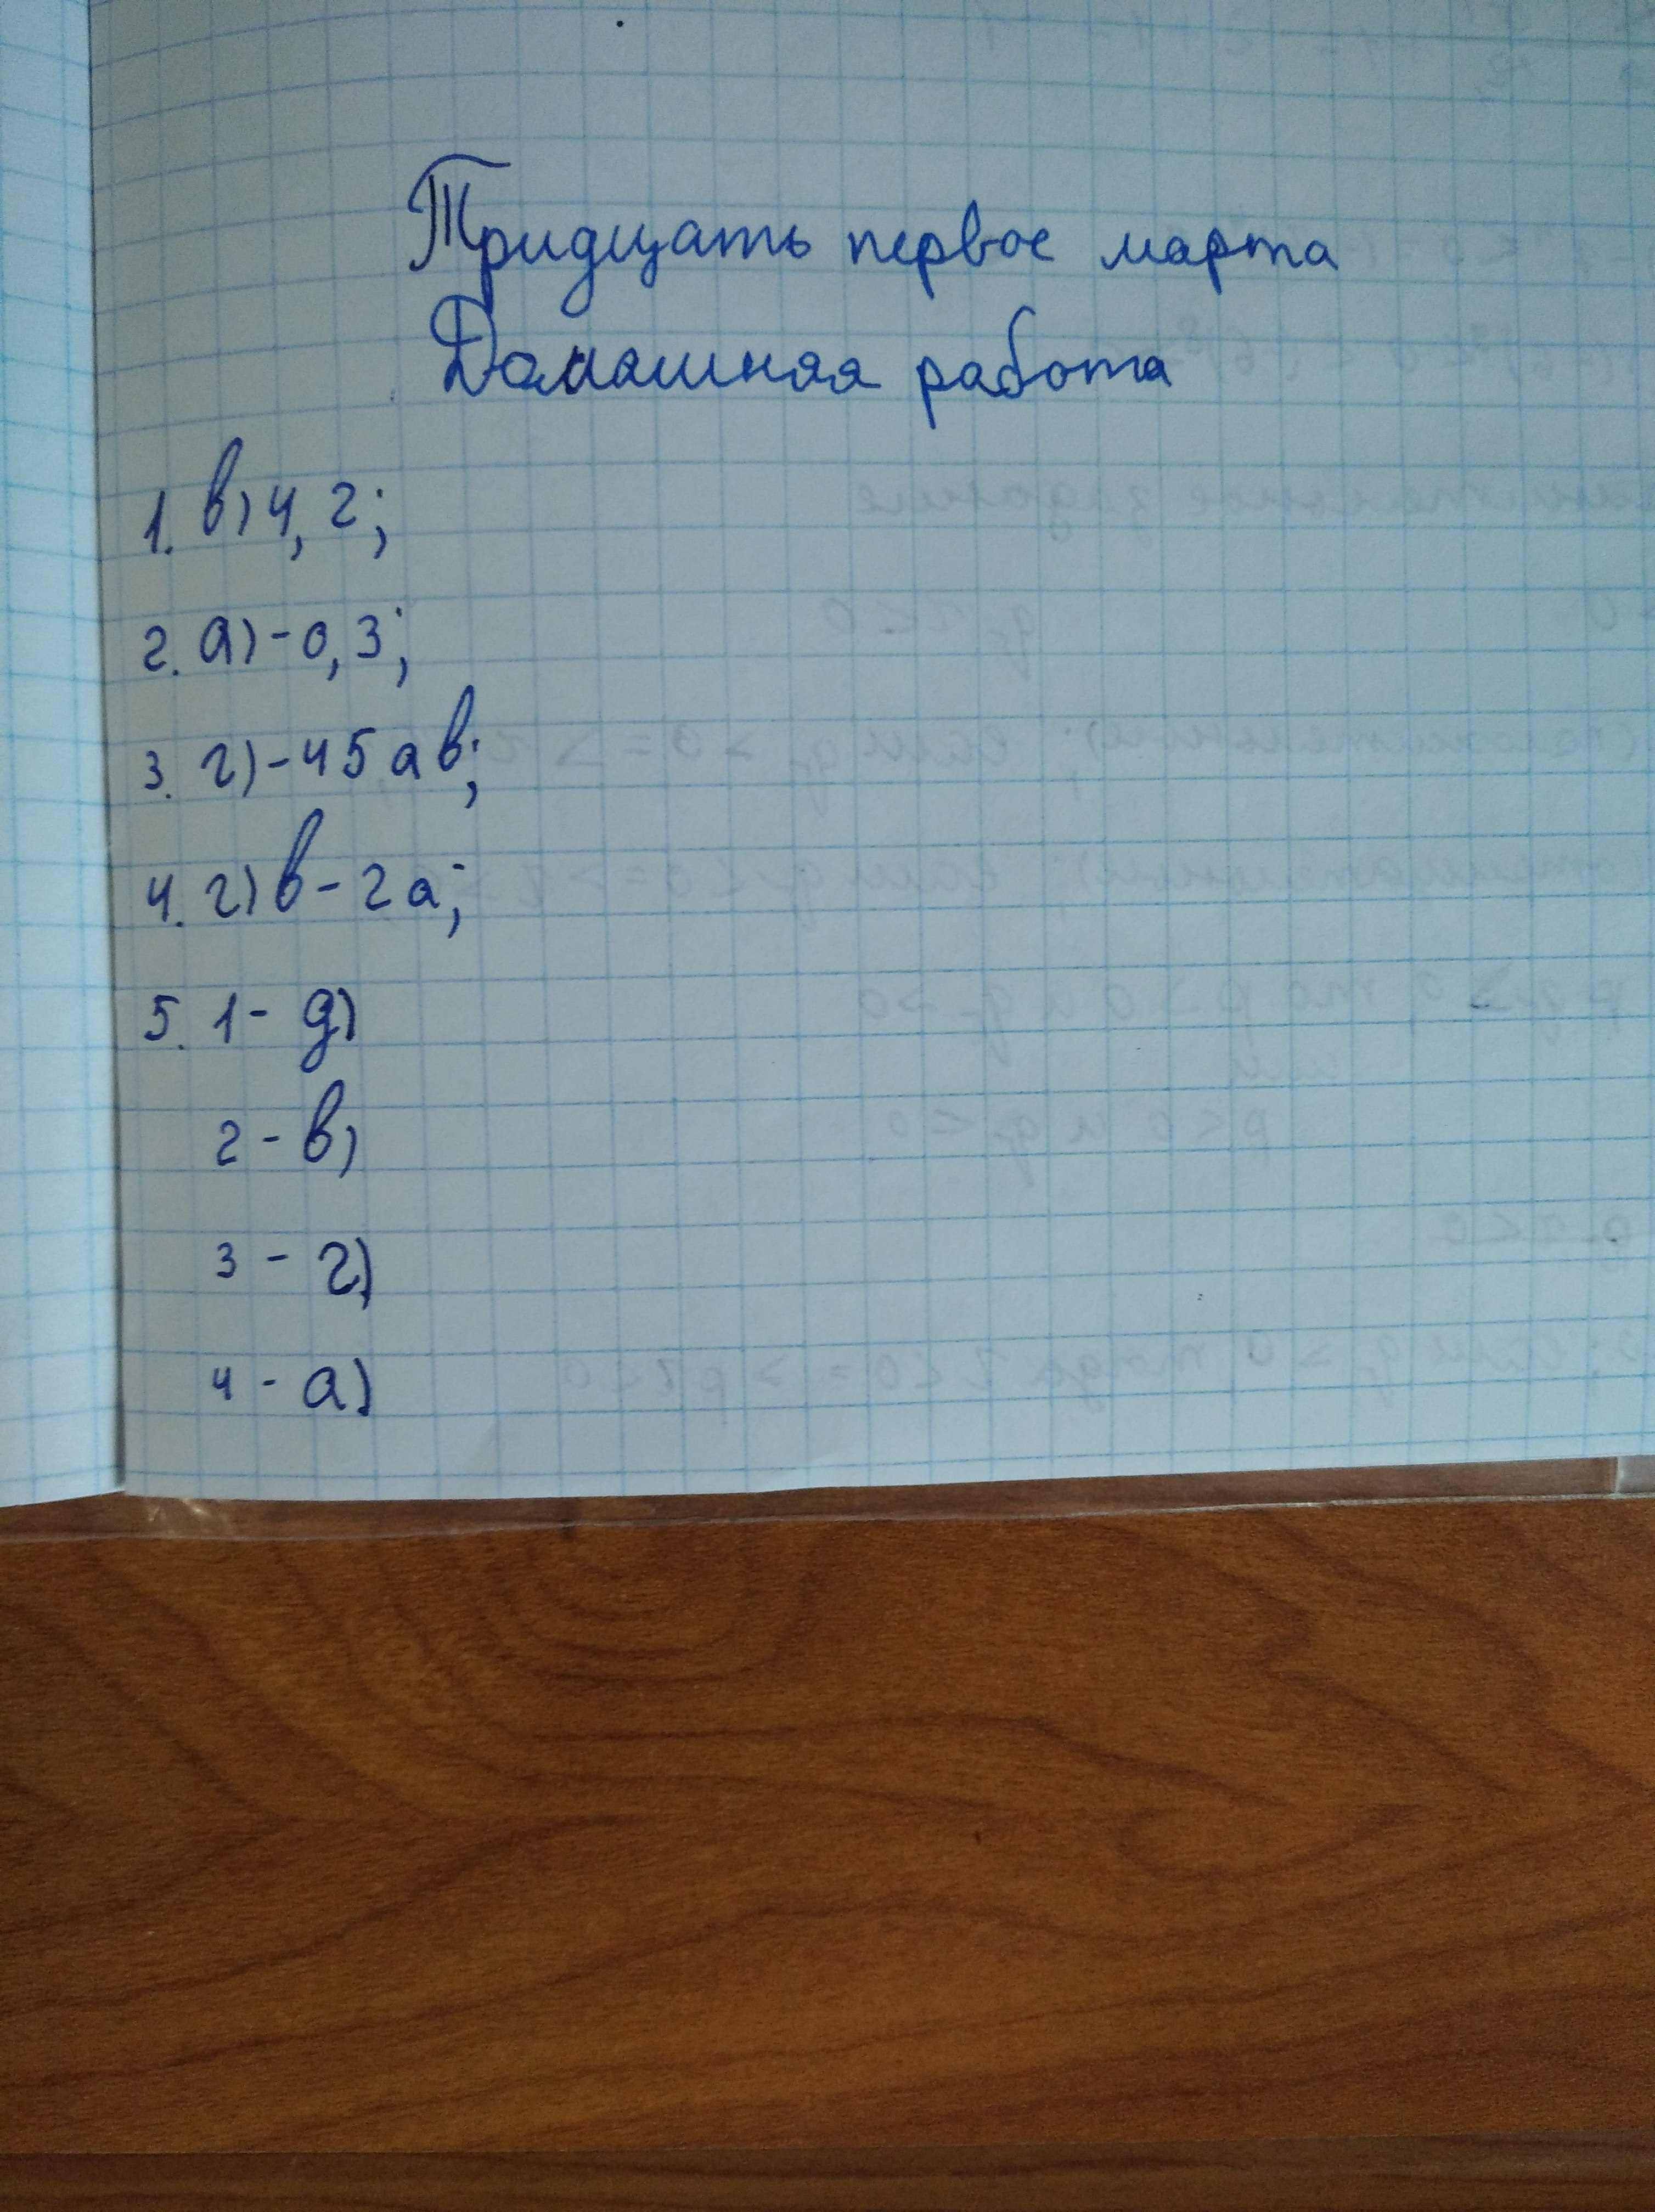 Тридцать первое марта
Домашняя работа
1. в) 4,2;
2. а) -0,3;
3. г) -45ав;
4. г) в - 2а;
5. 1 - д)
2 - в)
3 - г)
4 - а)